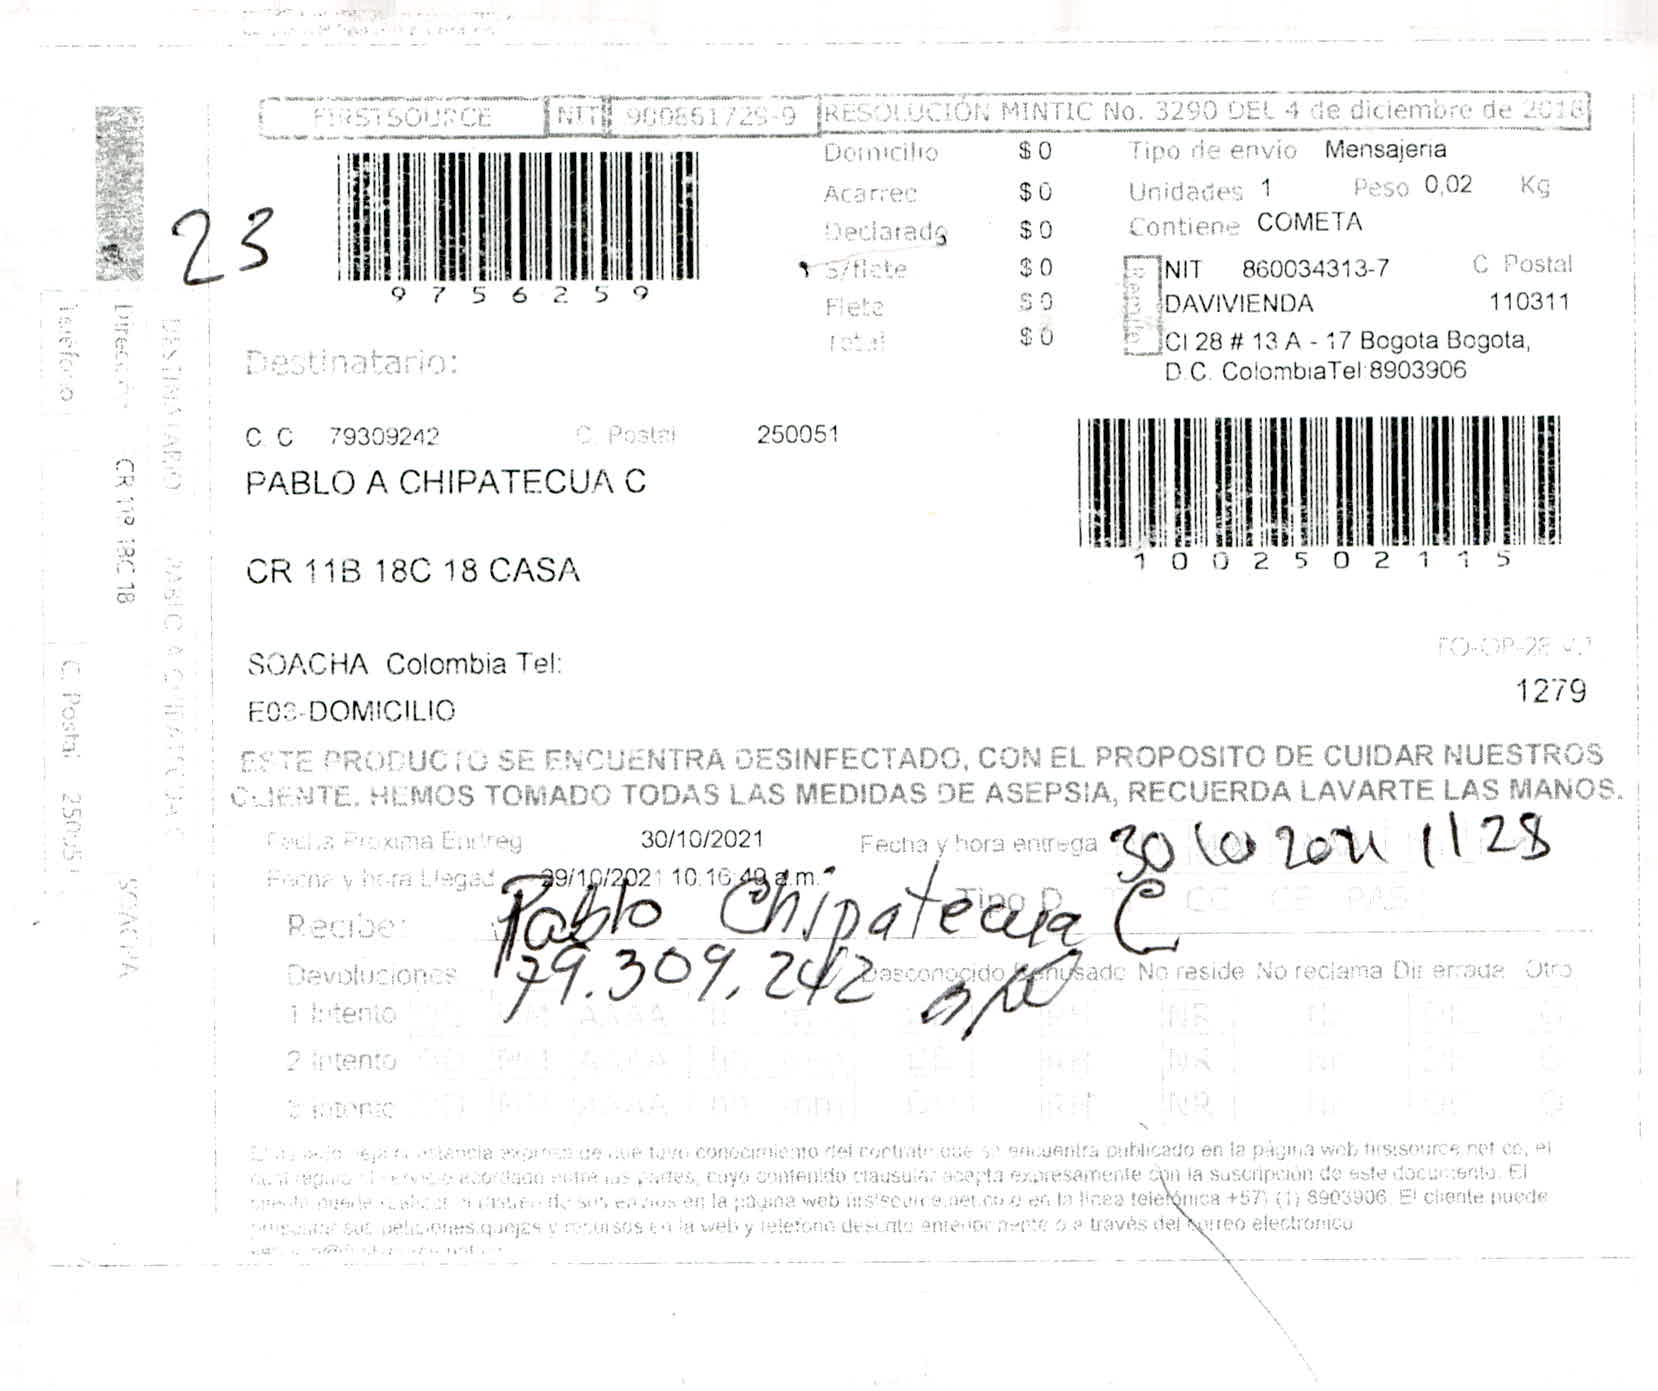 FIRSTSOURCE NIT 900861729-9 RESOLUCIÓN MINTIC No. 3290 DEL 4 de diciembre de 2018
23
9756259
Domicilio $ 0
Acarreo $ 0
Declarado $ 0
S/flete $ 0
Flete $ 0
Total $ 0
Tipo de envio Mensajeria
Unidades 1 Peso 0,02 Kg
Contiene COMETA
Remite
NIT 860034313-7 C Postal
DAVIVIENDA 110311
Cl 28 # 13 A - 17 Bogota Bogota,
D.C. ColombiaTel:8903906
Destinatario:
C C 79309242 C. Postal 250051
PABLO A CHIPATECUA C
1002502115
CR 11B 18C 18 CASA
SOACHA Colombia Tel:
E03-DOMICILIO
1279
ESTE PRODUCTO SE ENCUENTRA DESINFECTADO, CON EL PROPOSITO DE CUIDAR NUESTROS
CLIENTE. HEMOS TOMADO TODAS LAS MEDIDAS DE ASEPSIA, RECUERDA LAVARTE LAS MANOS.
Fecha Proxima Entreg 30/10/2021 Fecha y hora entrega 30 10 2021 11 28
Fecha y hora Llegad 29/10/2021 10:16:49 a.m.
Tipo D CC CE PAS
Recibe: Pablo Chipatecua C
79.309.242
Devoluciones Desconocido Rehusado No reside No reclama Dir errada Otro
1 Intento DD MM AAAA NR
2 Intento DD MM AAAA RH NR
3 Intento DD MM AAAA hh mm RH NR
tuvo conocimiento del contrato que se encuentra publicado en la página web firstsource.net.co, el
servicio acordado entre las partes, cuyo contenido clausular acepta expresamente con la suscripción de este documento. El
en la página web firstsource.net.co o en la línea telefónica +57 (1) 8903906. El cliente puede
sus peticiones quejas y recursos en la web y teléfono descrito anteriormente o a través del correo electrónico
Teléfono C. Postal 250051
Dirección CR 11B 18C 18 SOACHA
DESTINATARIO PABLO A CHIPATECUA C